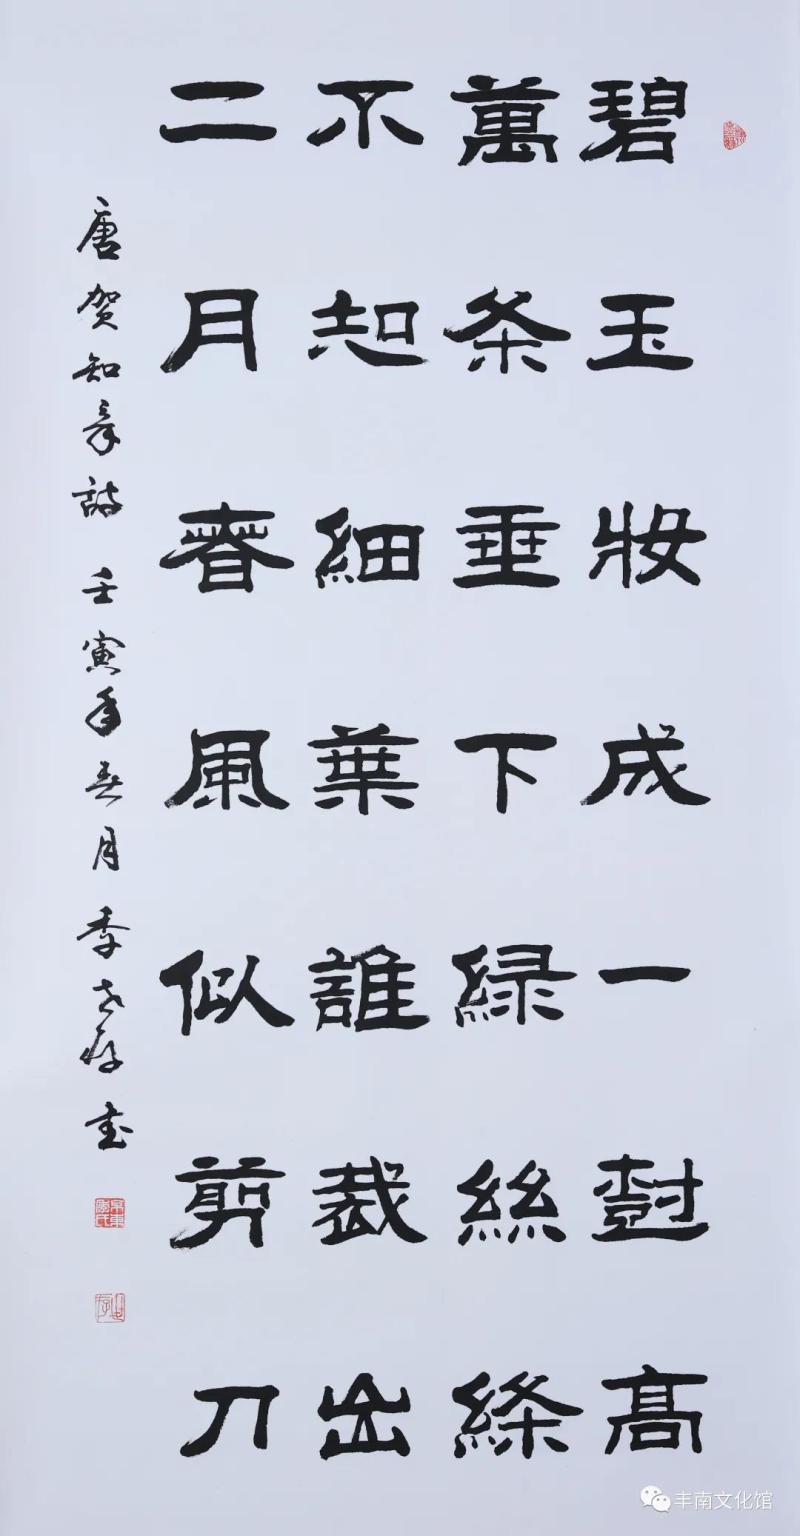 碧玉妝成一樹高
萬条垂下緑絲絛
不知細葉誰裁出
二月春風似剪刀
唐贺知章詩 壬寅年春月 李世存書
丰南文化馆